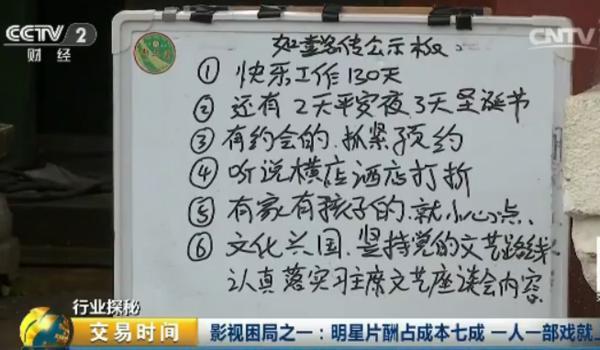 CCTV 2
财经
CNTV
如懿传公示板
① 快乐工作130天
② 还有2天平安夜.3天圣诞节
③ 有约会的.抓紧预约
④ 听说横店酒店打折
⑤ 有家有孩子的.就小心点.
⑥ 文化兴国.坚持党的文艺路线
认真落实习主席文艺座谈会内容
行业探秘
交易时间
影视困局之一：明星片酬占成本七成 一人一部戏就